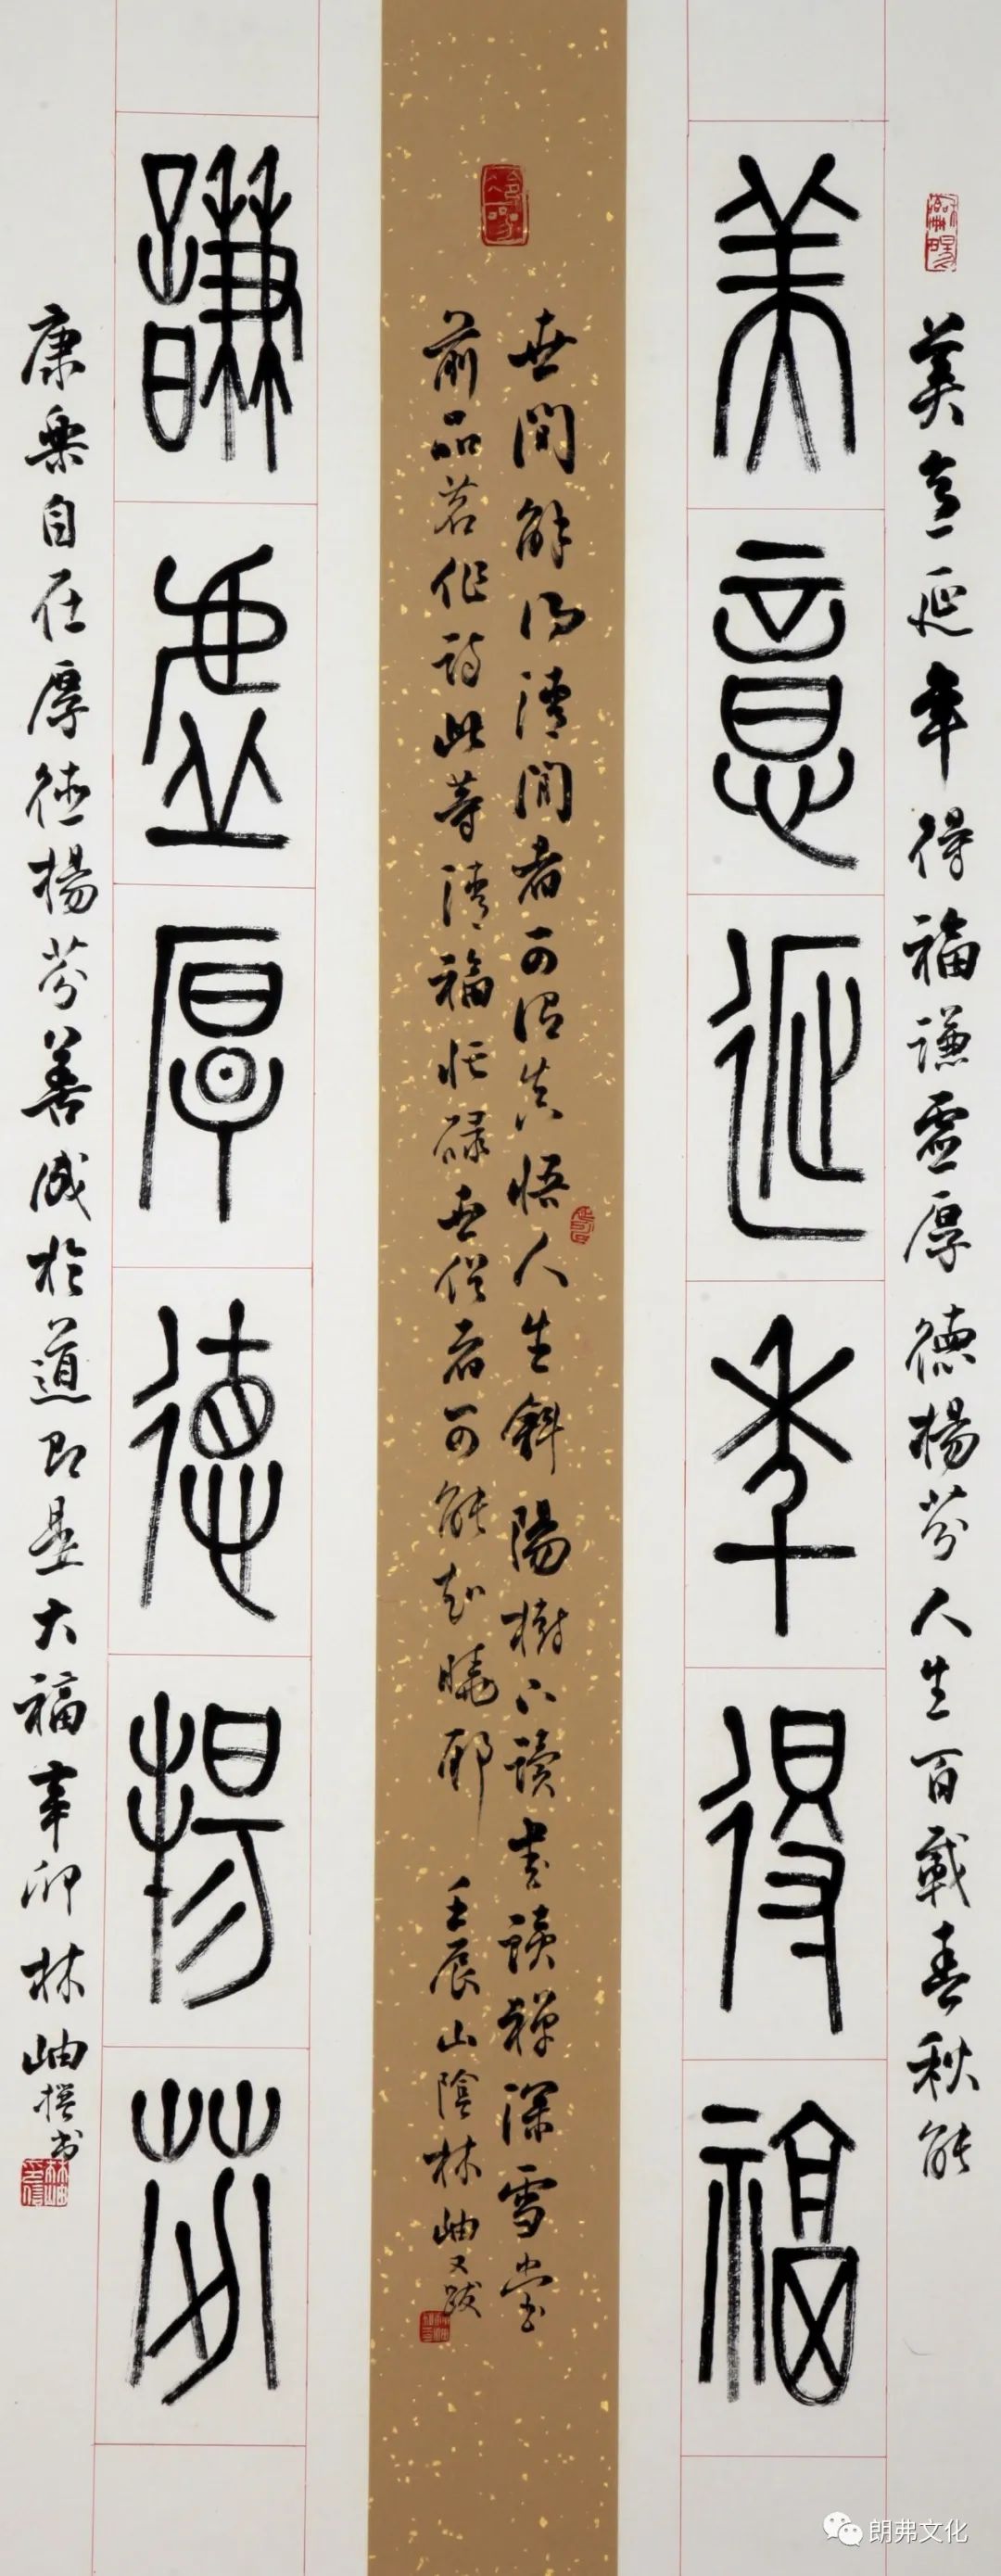 美意延年得福謙虛厚德揚芬人生百載春秋能
美意延年得福
世間解得清閒者可謂真悟人生斜陽樹下讀書讀禪深雪堂
前品茗作詩此等清福忙碌世俗者可能知曉耶 壬辰山陰林岫又跋
謙虛厚德揚芬
康樂自在厚德揚芬善成於道即是大福辛卯林岫撰書
朗弗文化